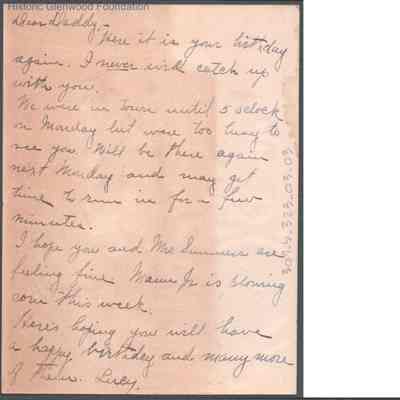 Historic Glenwood Foundation
Dear Daddy-
Here it is your birthday
again. I never will catch up
with you.
We were in town until 5 oclock
on Monday but were too busy to
see you. Will be there again
next Monday and may get
time to run in for a few
minutes.
I hope you and Mrs are
feeling fine. Jr is plowing
corn this week.
Here's hoping you will have
a happy birthday and many more
of them. Lucy.